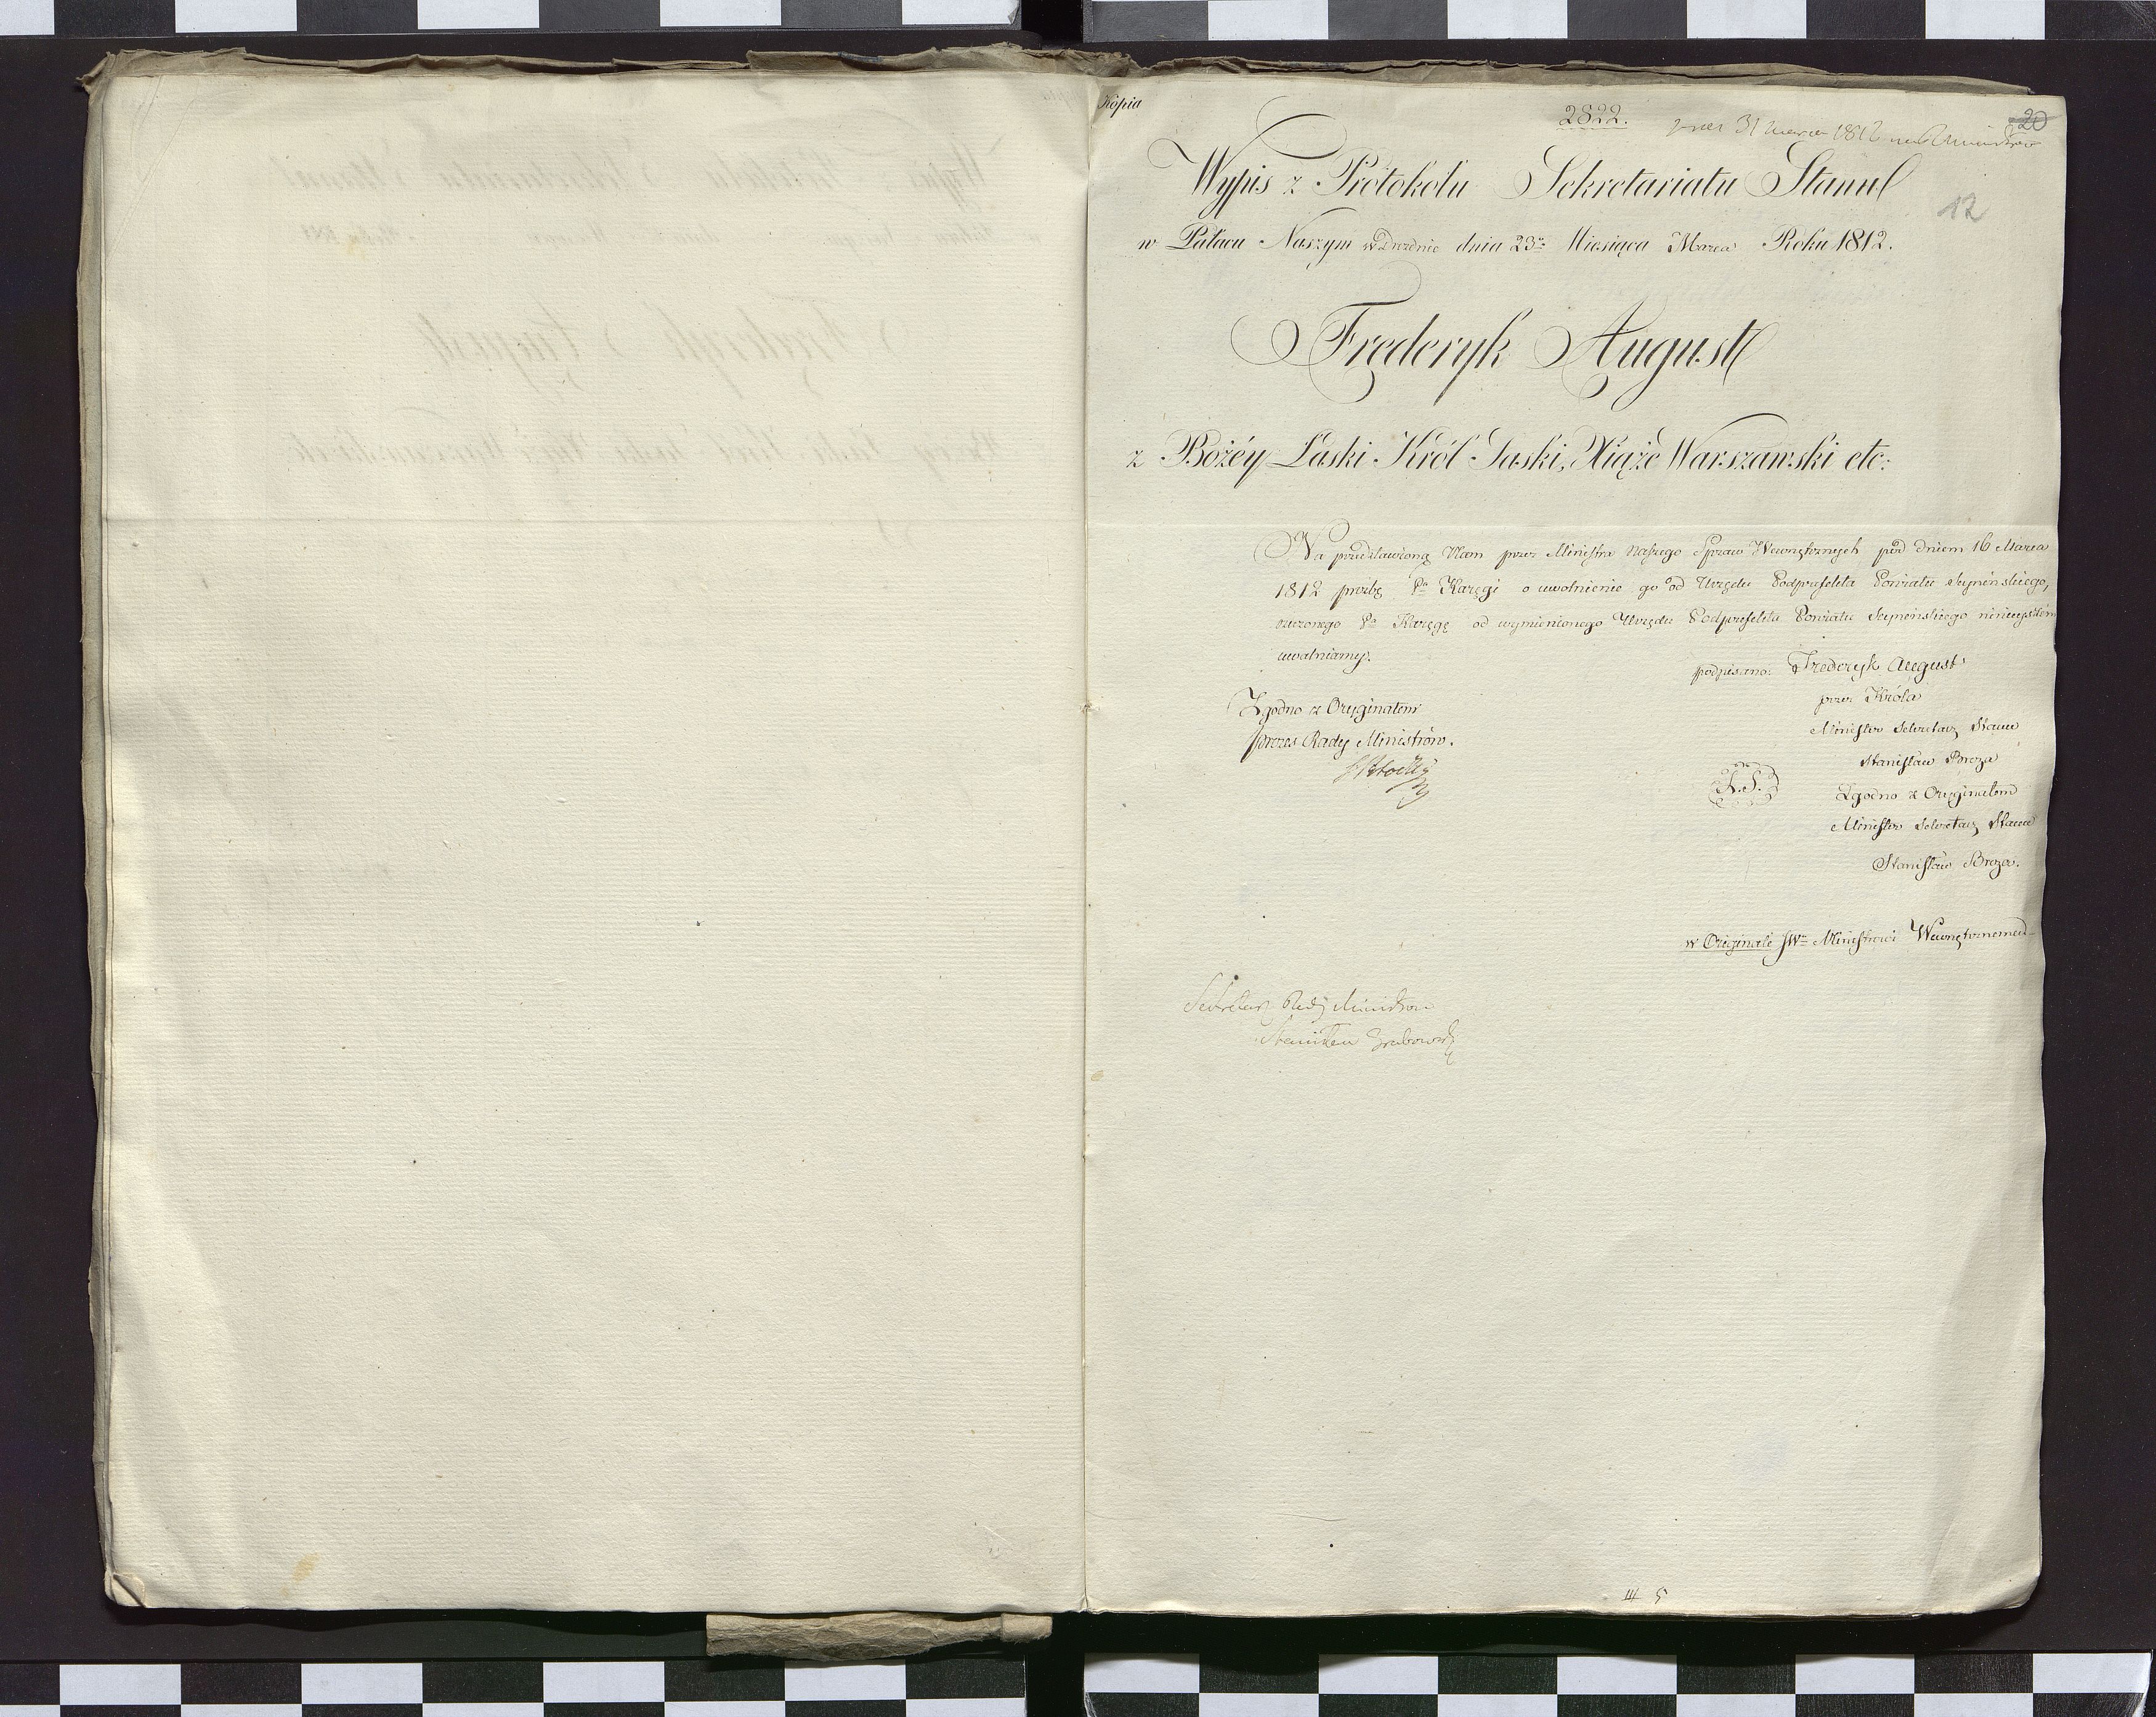 Kopia
2822.
31 Marca 1812
20
Wypis z Protokołu Sekretariatu Stanu
12
w Pałacu Naszym w Dreznie dnia 23go Miesiąca Marca Roku 1812.
Fryderyk August
z Bożéy Łaski Król Saski, Xiążę Warszawski etc:
Na przedstawioną Nam przez Ministra Naszego Spraw Wewnętrznych pod dniem 16 Marca
1812 prośbę Pa Karęgi o uwolnienie go od Urzędu Podprefekta Powiatu Seyneńskiego,
rzeczonego Pa Karęgę od wymienionego Urzędu Podprefekta Powiatu Seyneńskiego ninieyszém
uwalniamy.
podpisano: Fryderyk August
przez Króla
Minister Sekretarz Stanu
Stanisław Breza
L.S.
Zgodno z Oryginałem
Minister Sekretarz Stanu
Stanisław Breza.
Zgodno z Oryginałem
Prezes Rady Ministrów.
w Oryginale JWu Ministrowi Wewnętrznemu
Sekretarz Rady Ministrow
Stanisław Grabowski